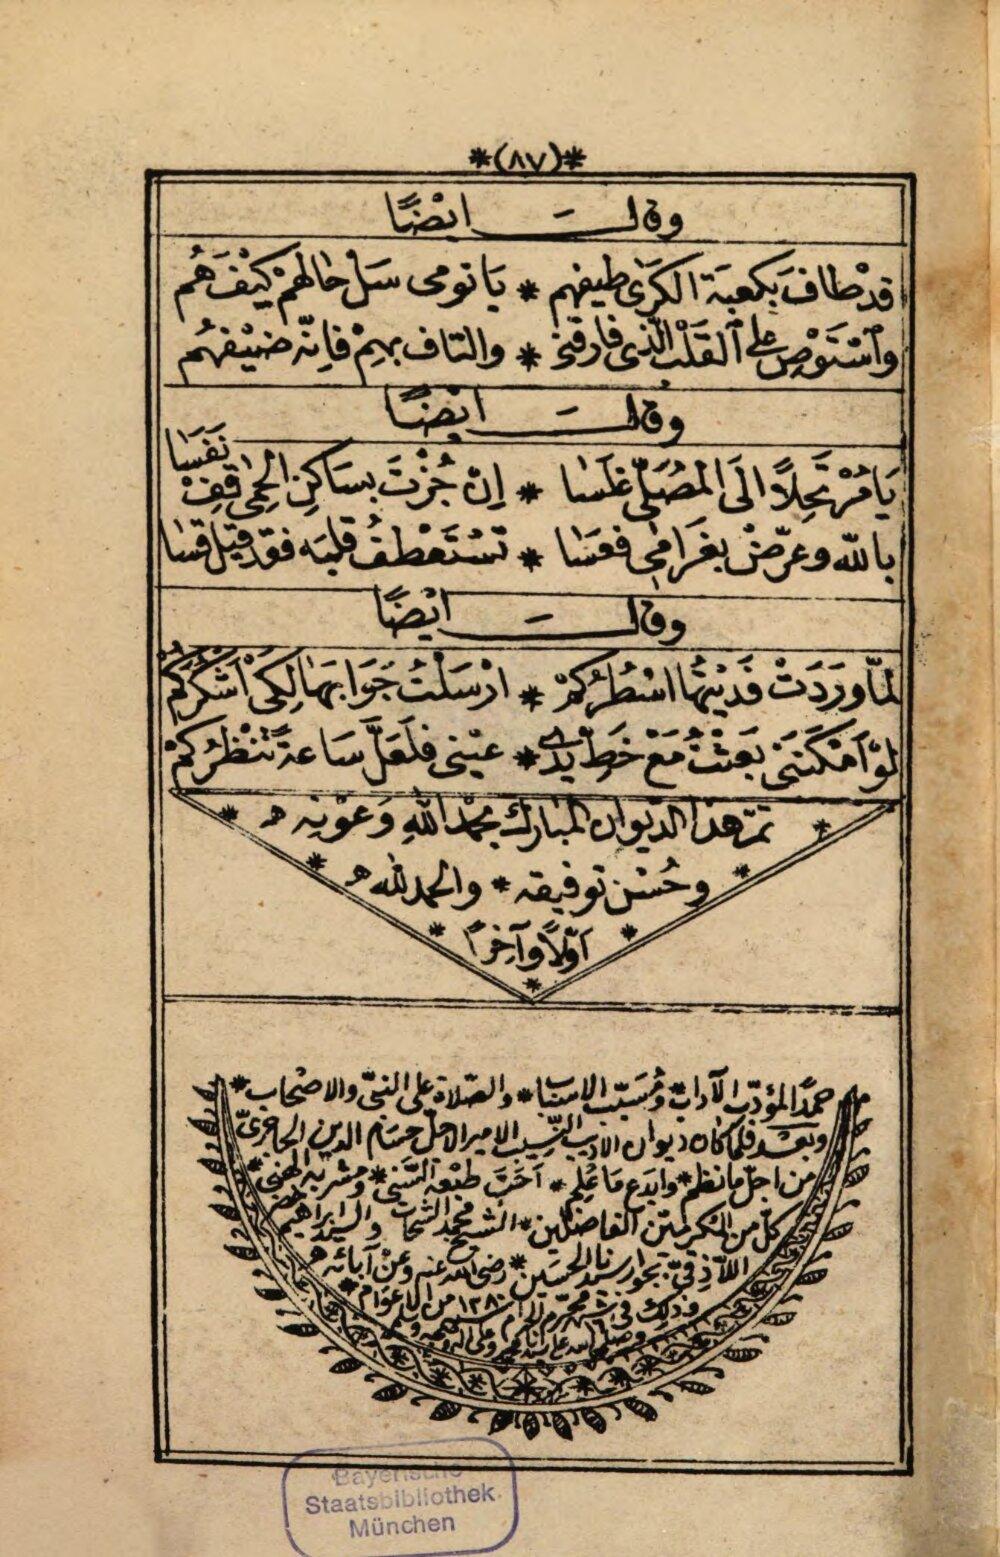 *(٨٧)*
وقال ايْضًا
قدْ طافَ بَكعبَة الكرَى طيفهم * يَا نومى سَلْ حالهمْ كيْفَ هُم
وٱسْتَوْصِ على ٱلقَلْب الّذى فارقنى * والتاف بهِمْ فاِنّه ضيْفهُم
وقال ايْضًا
يَا مُرْتَحِلاً الَى المُصَلّى غلَسَا * اِنْ جُزْتَ بسَاكن الحِمٰى قِفْ نَفَسَا
بالله وعرّضْ بغرَامٰى فعسَا * تسْتَعْطفُ قلبَه فقد قيل قسَا
وقال ايْضًا
لمّا ورَدَتْ فَدَيْتُها اسْطُركمْ * ارْسَلتُ جَوَابهَا لِكَىْ اَشْكُركُمْ
لوْ اَمْكَننى بَعثْتُ مَعْ خَطّ يَدِى * عيْنى فلعَلَّ سَاعةً تنْظُركمْ
تمّ هذا الدّيوان المبارك بحمْد اللهِ وَعوْنِه
وحُسْن توفيقه * والحمد لله
اَوّلاً وآخِراً
حمدًا لمؤدّب الآداب * ومُسَبّب الاسبَاب * والصّلاة على النبىّ والاصْحَاب *
وبَعْد فلما كان ديوان الاديب الاميرالاجلّ حسَام الدين الحاجرىّ
من اجلّ ما نظم * وابدَع مَا عُلِم * اَحَبَّ طبْعه السّنى * ومشربه الهنى *
كلّ من المكرمَيْن الفاضلين * الشيخ محمد الشحات والسيد ابراهيم
اللاّذقىّ بجوار سيدنا الحسَين * رضى الله عنه وعنْ آبائه
وذلك فى شهر محرّم الحرام سنة ١٢٨٠ من الاعوام *
وصلى الله على سيدنا محمد وعلى اله وصحبه وسلم
Bayerische
Staatsbibliothek
München